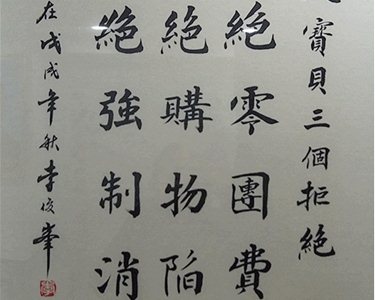 寶貝三個拒絕
絕零團費
絕購物陷
絕強制消
在戊戌年秋李俊峯